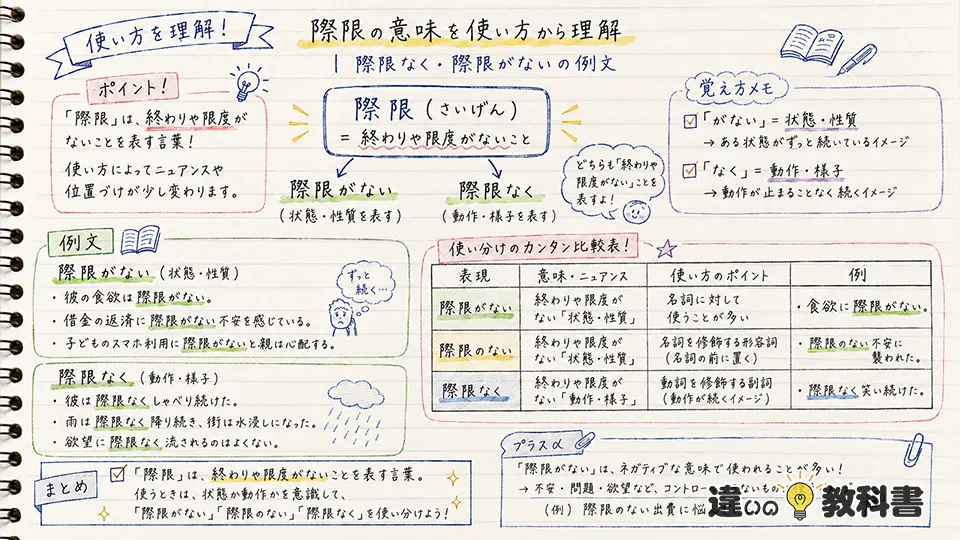 使い方を理解！
際限の意味を使い方から理解
| 際限なく・際限がないの例文
ポイント！
「際限」は、終わりや限度が
ないことを表す言葉！
使い方によってニュアンスや
位置づけが少し変わります。
際限（さいげん）
＝終わりや限度がないこと
際限がない
（状態・性質を表す）
際限なく
（動作・様子を表す）
どちらも「終わりや
限度がない」ことを
表すよ！
覚え方メモ
「がない」＝状態・性質
→ ある状態がずっと続いているイメージ
「なく」＝動作・様子
→ 動作が止まることなく続くイメージ
例文
際限がない（状態・性質）
・彼の食欲は際限がない。
・借金の返済に際限がない不安を感じている。
・子どものスマホ利用に際限がないと親は心配する。
ずっと
続く…
際限なく（動作・様子）
・彼は際限なくしゃべり続けた。
・雨は際限なく降り続き、街は水浸しになった。
・欲望に際限なく流されるのはよくない。
使い分けのカンタン比較表！
表現 意味・ニュアンス 使い方のポイント 例
際限がない 終わりや限度が
ない「状態・性質」 名詞に対して
使うことが多い ・食欲に際限がない。
際限のない 終わりや限度が
ない「状態・性質」 名詞を修飾する形容詞
（名詞の前に置く） ・際限のない不安に
襲われた。
際限なく 終わりや限度が
ない「動作・様子」 動詞を修飾する副詞
（動作が続くイメージ） ・際限なく笑い続けた。
まとめ
「際限」は、終わりや限度がないことを表す言葉。
使うときは、状態か動作かを意識して、
「際限がない」「際限のない」「際限なく」を使い分けよう！
プラスα
「際限がない」は、ネガティブな意味で使われることが多い！
→ 不安・問題・欲望など、コントロー ないもの
（例）際限のない出費に悩
違いの教科書